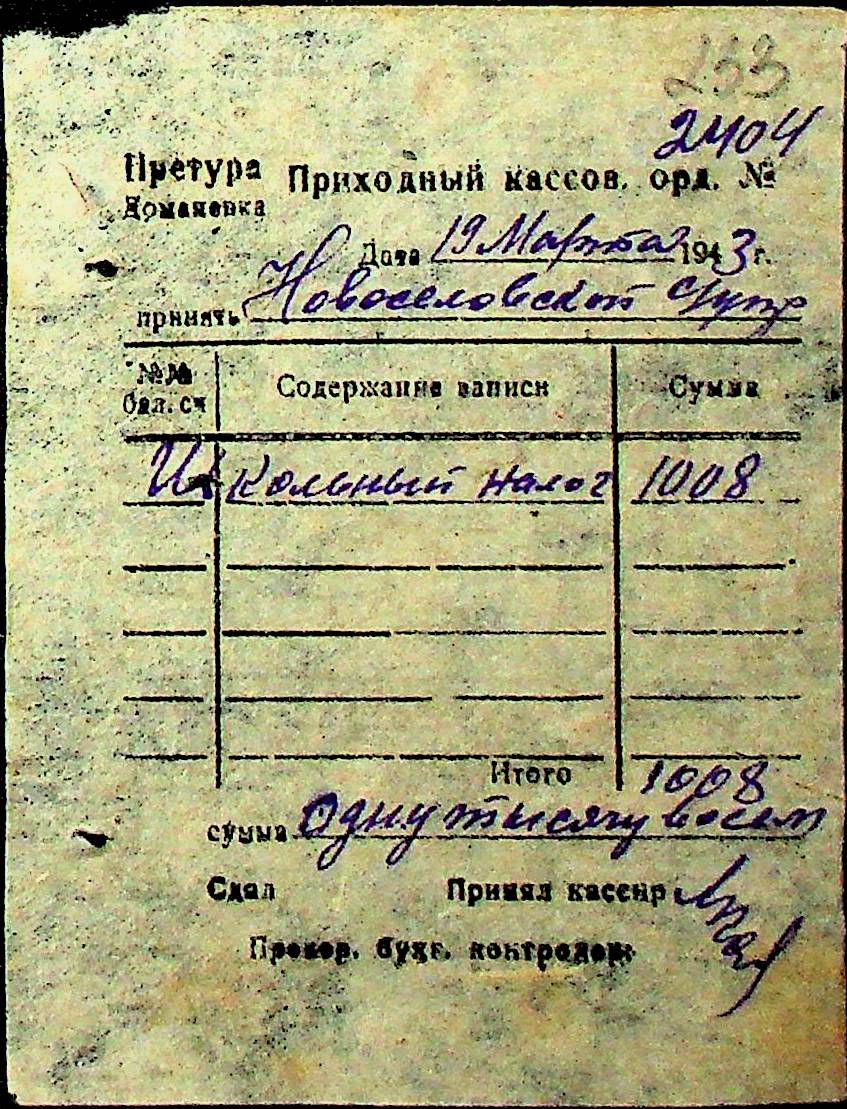 253
2404
Претура Приходный кассов. орд. №
Домановка
Дата 19 Марта 1943 г.
принять Новоселовской
№№ Содержание записи Сумма
бал. сч
Школьный налог 1008
Итого 1008
сумма Одну тысячу восем
Сдал Принял кассир
Провер. бухг. контролер: